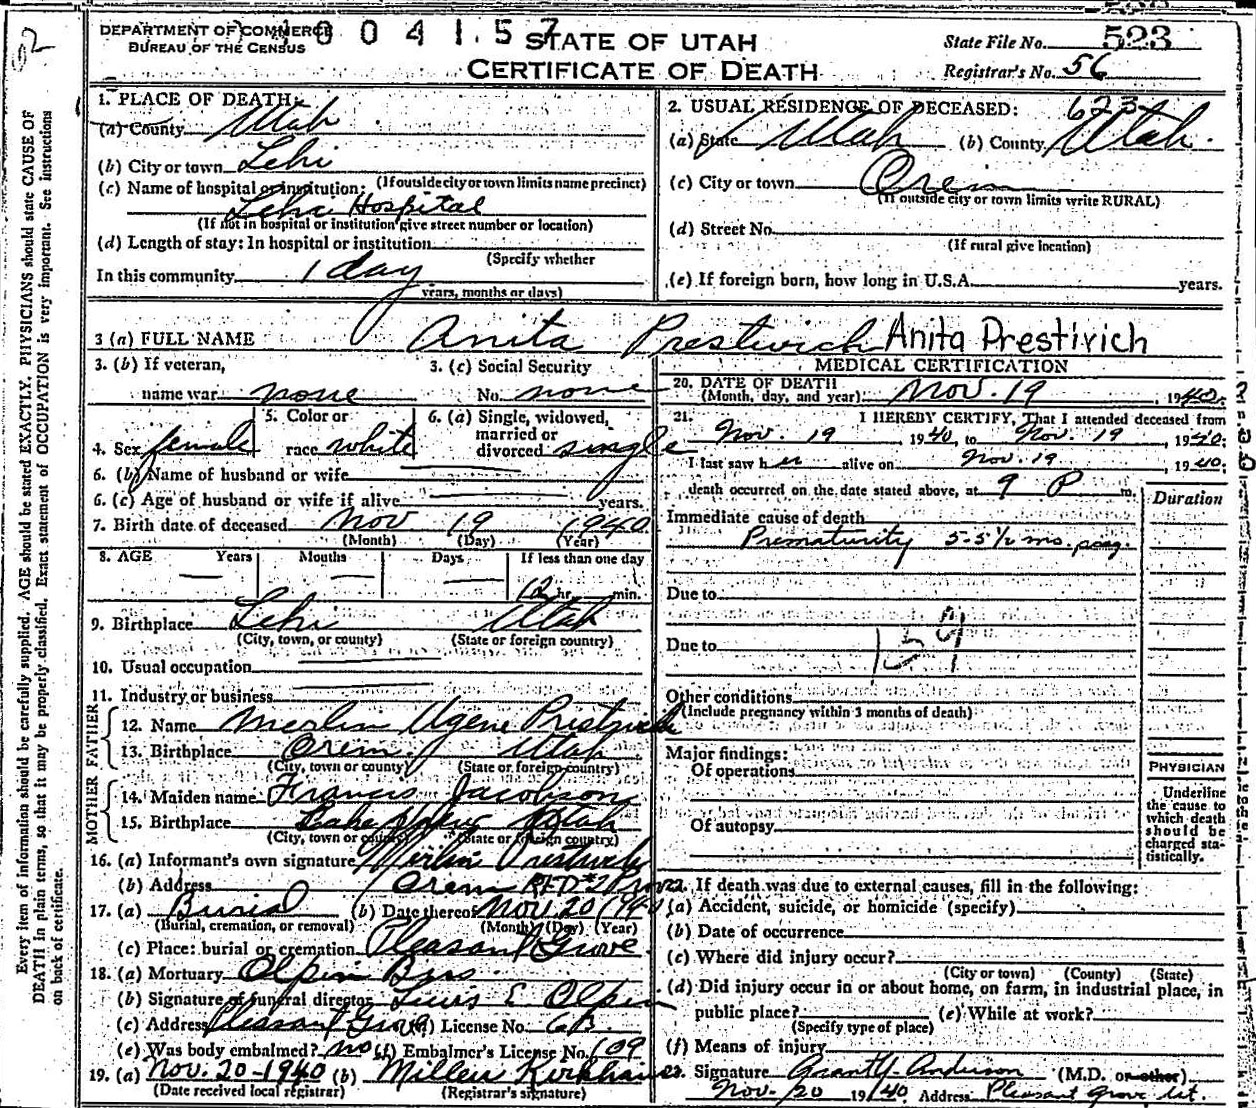 DEPARTMENT OF COMMERCE
BUREAU OF THE CENSUS
004157
STATE OF UTAH
CERTIFICATE OF DEATH
State File No. 523
Registrar's No. 56
Every item of information should be carefully supplied. AGE should be stated EXACTLY. PHYSICIANS should state CAUSE OF
DEATH in plain terms, so that it may be properly classified. Exact statement of OCCUPATION is very important. See instructions
on back of certificate.
1. PLACE OF DEATH:
(a) County Utah
(b) City or town Lehi
(If outside city or town limits name precinct)
(c) Name of hospital or institution:
Lehi Hospital
(If not in hospital or institution give street number or location)
(d) Length of stay: In hospital or institution
(Specify whether
In this community 1 day
years, months or days)
2. USUAL RESIDENCE OF DECEASED: 623
(a) State Utah (b) County Utah
(c) City or town Orem
(If outside city or town limits write RURAL)
(d) Street No.
(If rural give location)
(e) If foreign born, how long in U.S.A. years.
3 (a) FULL NAME Anita Prestwich Anita Prestivich
3. (b) If veteran,
name war none
3. (c) Social Security
No. none
4. Sex female
5. Color or
race white
6. (a) Single, widowed,
married or
divorced single
6. (b) Name of husband or wife
6. (c) Age of husband or wife if alive years.
7. Birth date of deceased Nov 19 1940
(Month) (Day) (Year)
8. AGE Years Months Days If less than one day
12 hr. min.
9. Birthplace Lehi Utah
(City, town, or county) (State or foreign country)
10. Usual occupation
11. Industry or business
FATHER
12. Name Merlin Ugene Prestwich
13. Birthplace Orem Utah
(City, town or county) (State or foreign country)
MOTHER
14. Maiden name Francis Jacobson
15. Birthplace Utah
(City, town or county) (State or foreign country)
16. (a) Informant's own signature Merlin Prestwich
(b) Address Orem RFD #2 Provo
17. (a) Burial (b) Date thereof Nov. 20 1940
(Burial, cremation, or removal) (Month) (Day) (Year)
(c) Place: burial or cremation Pleasant Grove
18. (a) Mortuary Olpin Bros
(b) Signature of funeral director Louis E. Olpin
(c) Address Pleasant Grove (d) License No.
(e) Was body embalmed? no (f) Embalmer's License No. 109
19. (a) Nov. 20-1940 (b) Kirkham
(Date received local registrar) (Registrar's signature)
MEDICAL CERTIFICATION
20. DATE OF DEATH
(Month, day, and year): Nov. 19, 1940.
21. I HEREBY CERTIFY, That I attended deceased from
Nov. 19 1940, to Nov. 19, 1940;
I last saw her alive on Nov. 19, 1940;
death occurred on the date stated above, at 9 P m.
Duration
Immediate cause of death
Prematurity 5-5½ mo. preg.
Due to
159
Due to
Other conditions
(Include pregnancy within 3 months of death)
Major findings:
Of operations
Of autopsy
PHYSICIAN
Underline
the cause to
which death
should be
charged sta-
tistically.
22. If death was due to external causes, fill in the following:
(a) Accident, suicide, or homicide (specify)
(b) Date of occurrence
(c) Where did injury occur?
(City or town) (County) (State)
(d) Did injury occur in or about home, on farm, in industrial place, in
public place? (e) While at work?
(Specify type of place)
(f) Means of injury
23. Signature Grant Y. Anderson (M.D. or other)
Nov. 20 1940 Address Pleasant Grove Ut.